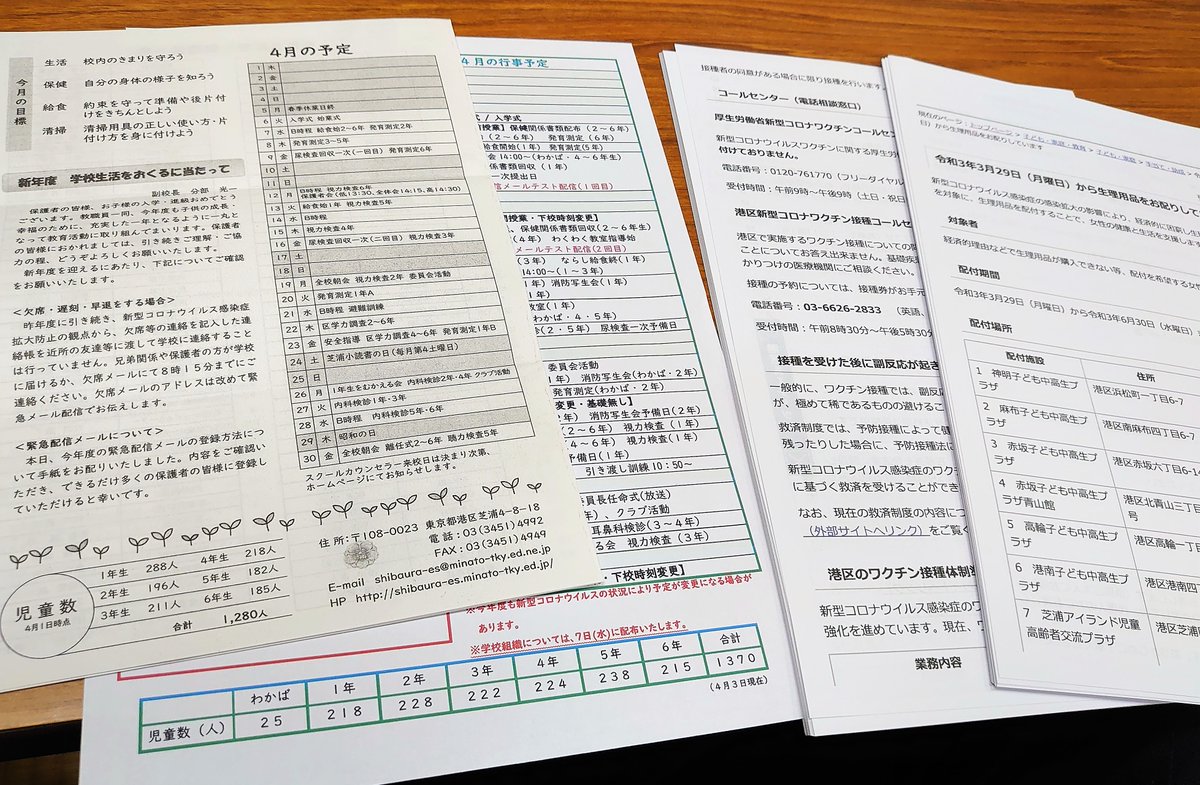 今月の目標
生活 校内のきまりを守ろう
保健 自分の身体の様子を知ろう
給食 約束を守って準備や後片付
けをきちんとしよう
清掃 清掃用具の正しい使い方・片
付け方を身に付けよう
新年度 学校生活をおくるに当たって
副校長 分部 光一
保護者の皆様、お子様の入学・進級おめでとう
ございます。教職員一同、今年度も子供の成長・
幸福のために、充実した一年となるように一丸と
なって教育活動に取り組んでまいります。保護者
の皆様におかれましては、引き続きご理解・ご協
力の程、どうぞよろしくお願いいたします。
新年度を迎えるにあたり、下記についてご確認
をお願いします。
<欠席・遅刻・早退をする場合>
昨年度に引き続き、新型コロナウイルス感染症
拡大防止の観点から、欠席等の連絡を記入した連
絡帳を近所の友達等に渡して学校に連絡すること
は行っていません。兄弟関係や保護者の方が学校
に届けるか、欠席メールにて8時15分までにご
連絡ください。欠席メールのアドレスは改めて緊
急メール配信でお伝えします。
<緊急配信メールについて>
本日、今年度の緊急配信メールの登録方法につ
いて手紙をお配りいたしました。内容をご確認い
ただき、できるだけ多くの保護者の皆様に登録し
ていただけると幸いです。
児童数
4月1日時点
1年生 288人 4年生 218人
2年生 196人 5年生 182人
3年生 211人 6年生 185人
合計 1,280人
4月の予定
1 木
2 金
3 土
4 日
5 月 春季休業日終
6 火 入学式 始業式
7 水 B時程 給食始2~6年 発育測定2年
8 木 発育測定3~5年
9 金 尿検査回収一次(一回目) 発育測定6年
10 土
11 日
12 月 B時程 視力検査6年
保護者会(低13:30、全体会14:15、高14:30)
13 火 給食始1年 視力検査5年
14 水 B時程
15 木 視力検査4年
16 金 尿検査回収一次(二回目) 視力検査3年
17 土
18 日
19 月 全校朝会 視力検査2年 委員会活動
20 火 発育測定1年A
21 水 B時程 避難訓練
22 木 区学力調査2~6年
23 金 安全指導 区学力調査4~6年 発育測定1年B
24 土 芝浦小読書の日(毎月第4土曜日)
25 日
26 月 1年生をむかえる会 内科検診2年・4年 クラブ活動
27 火 内科検診1年・3年
28 水 B時程 内科検診5年・6年
29 木 昭和の日
30 金 全校朝会 離任式2~6年 聴力検査5年
スクールカウンセラー来校日は決まり次第、
ホームページにてお知らせします。
住所:〒108-0023 東京都港区芝浦4-8-18
電話:03(3451)4992
FAX:03(3451)4949
E-mail shibaura-es@minato-tky.ed.ne.jp
HP http://shibaura-es.minato-tky.ed.jp/
4月の行事予定
式/入学式
授業】保健関係書類配布(2~6年)
(2~4年) 発育測定(6年)
給食開始(1年) 発育測定(5年)
会14:00~(わかば・4~6年生)
書類回収(1年)
一次提出日
メールテスト配信(1回目)
授業・下校時刻変更】
、保健関係書類回収(2~6年生)
(4年) わくわく教室指導始
メールテスト配信(2回目)
(3年) ならし給食終(1年)
14:00~(1~3年)
(1年) 消防写生会(1年)
教室(1年)
わかば・4・5年)
会(2・5年) 尿検査一次予備日
委員会活動
1年) 消防写生会(わかば・2年)
発育測定(わかば・2年)
変更・基礎無し】
年) 消防写生会予備日(2年)
4~6年) 視力検査(1年)
予備日(1年)
引き渡し訓練10:50~
委員長任命式(放送)
)、クラブ活動
耳鼻科検診(3~4年)
る会 視力検査(3年)
・下校時刻変更】
※今年度も新型コロナウイルスの状況により予定が変更になる場合が
あります。
※学校組織については、7日(水)に配布いたします。
わかば 1年 2年 3年 4年 5年 6年 合計
児童数(人) 25 218 228 222 224 238 215 1370
(4月3日現在)
接種者の同意がある場合に限り接種を行います
コールセンター(電話相談窓口)
厚生労働省新型コロナワクチンコールセン
新型コロナウイルスワクチンに関する厚生労
付けておりません。
電話番号:0120-761770(フリーダイヤル
受付時間:午前9時~午後9時(土日・祝日
港区新型コロナワクチン接種コールセ
港区で実施するワクチン接種についての問
ことについてお答え出来ません。基礎疾患
かりつけの医療機関にご相談ください。
接種の予約については、接種券がお手元
電話番号:03-6626-2833 (英語、
受付時間:午前8時30分~午後5時30分
接種を受けた後に副反応が起き
一般的に、ワクチン接種では、副反応
が、極めて稀であるものの避けるこ
救済制度では、予防接種によって健
残ったりした場合に、予防接種法に
新型コロナウイルス感染症のワク
に基づく救済を受けることができ
なお、現在の救済制度の内容につ
(外部サイトへリンク)をご覧く
港区のワクチン接種体制
新型コロナウイルス感染症のワ
強化を進めています。現在、ワ
業務内容
現在のページ:トップページ > 子ども・家庭・教育 > 子ども・家庭 > 手当て・助成 >
日)から生理用品をお配りしています
令和3年3月29日(月曜日)から生理用品をお配りして
新型コロナウイルス感染症の感染拡大の影響により、経済的に困窮し生
を対象に、生理用品を配付することで、女性の健康と生活を支援しま
対象者
経済的理由などで生理用品が購入できない等、配付を希望する女
配付期間
令和3年3月29日(月曜日)から令和3年6月30日(水曜日)
配付場所
配付施設 住所
1 神明子ども中高生プ
ラザ 港区浜松町一丁目6-7
2 麻布子ども中高生プ
ラザ 港区南麻布四丁目6-7
3 赤坂子ども中高生プ
ラザ 港区赤坂六丁目6-14
4 赤坂子ども中高生プ
ラザ青山館 港区北青山三丁目
号
5 高輪子ども中高生プ
ラザ 港区高輪一丁目
6 港南子ども中高生プ
ラザ 港区港南四丁
7 芝浦アイランド児童
高齢者交流プラザ 港区芝浦四